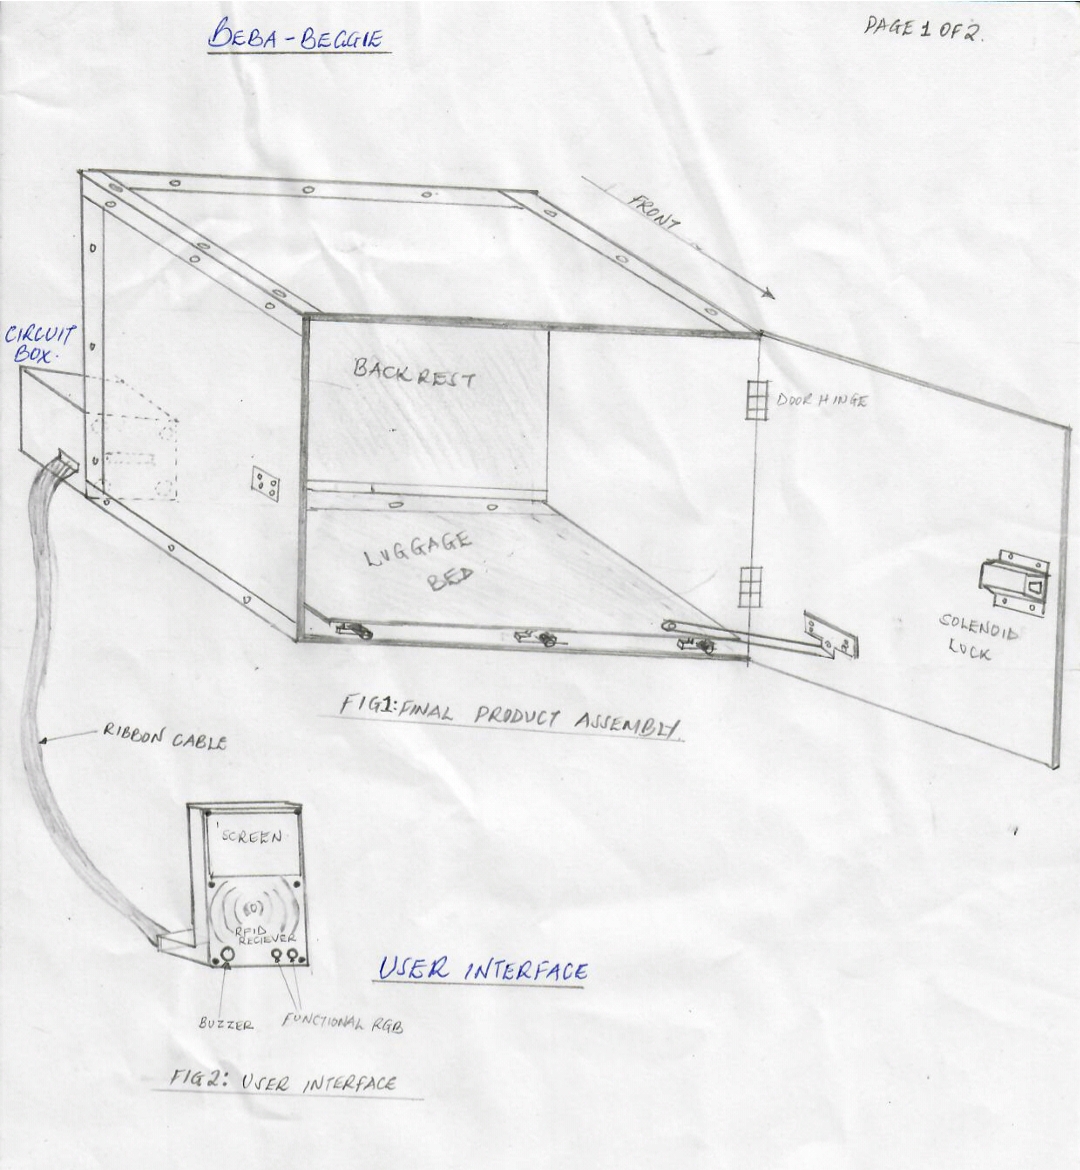 BEBA-BEGGIE
PAGE 1 OF 2.
FRONT
CIRCUIT
BOX.
BACKREST
DOOR HINGE
LUGGAGE
BED
SOLENOID
LOCK
FIG1: FINAL PRODUCT ASSEMBLY.
RIBBON CABLE
SCREEN
RFID
RECIEVER
USER INTERFACE
BUZZER
FUNCTIONAL RGB
FIG2: USER INTERFACE